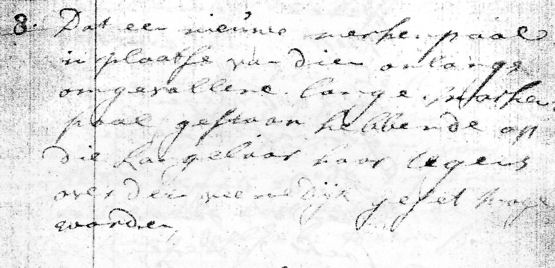 8. Dat een nieuwe merke paal
in plaatse van dien onlangs
omgevallene lange marke
paal gestaan hebbende op
die naar
over den veenedijk geset moge
worden